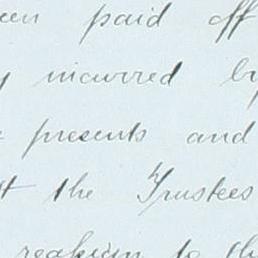 een paid off
y incurred b
presents and
st the Trustees
to th